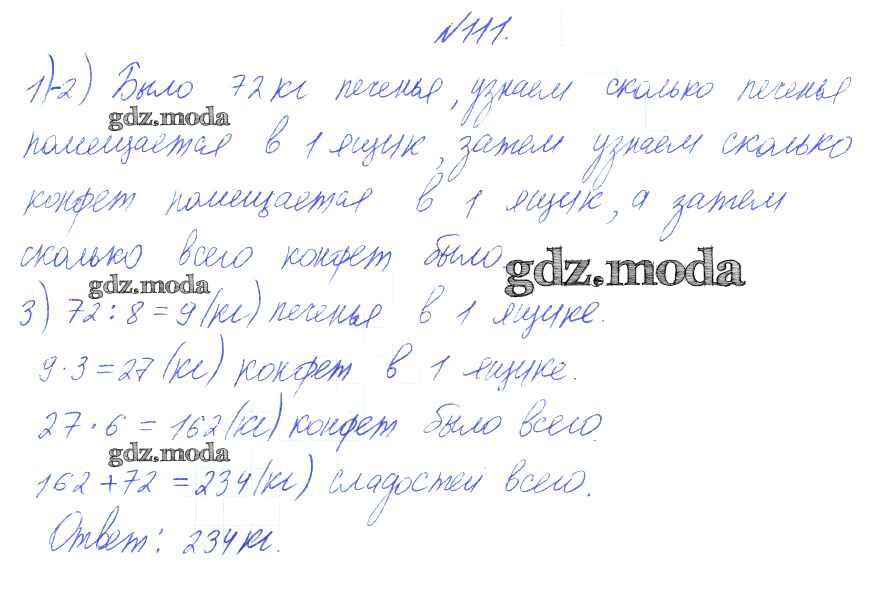 №111.
1)-2) Было 72 кг печенья, узнаем сколько печенья
gdz.moda
помещается в 1 ящик, затем узнаем сколько
конфет помещается в 1 ящик, а затем
сколько всего конфет было.
gdz.moda
gdz.moda
3) 72 : 8 = 9 (кг) печенья в 1 ящике.
9 · 3 = 27 (кг) конфет в 1 ящике.
27 · 6 = 162 (кг) конфет было всего.
gdz.moda
162 + 72 = 234 (кг) сладостей всего.
Ответ: 234 кг.